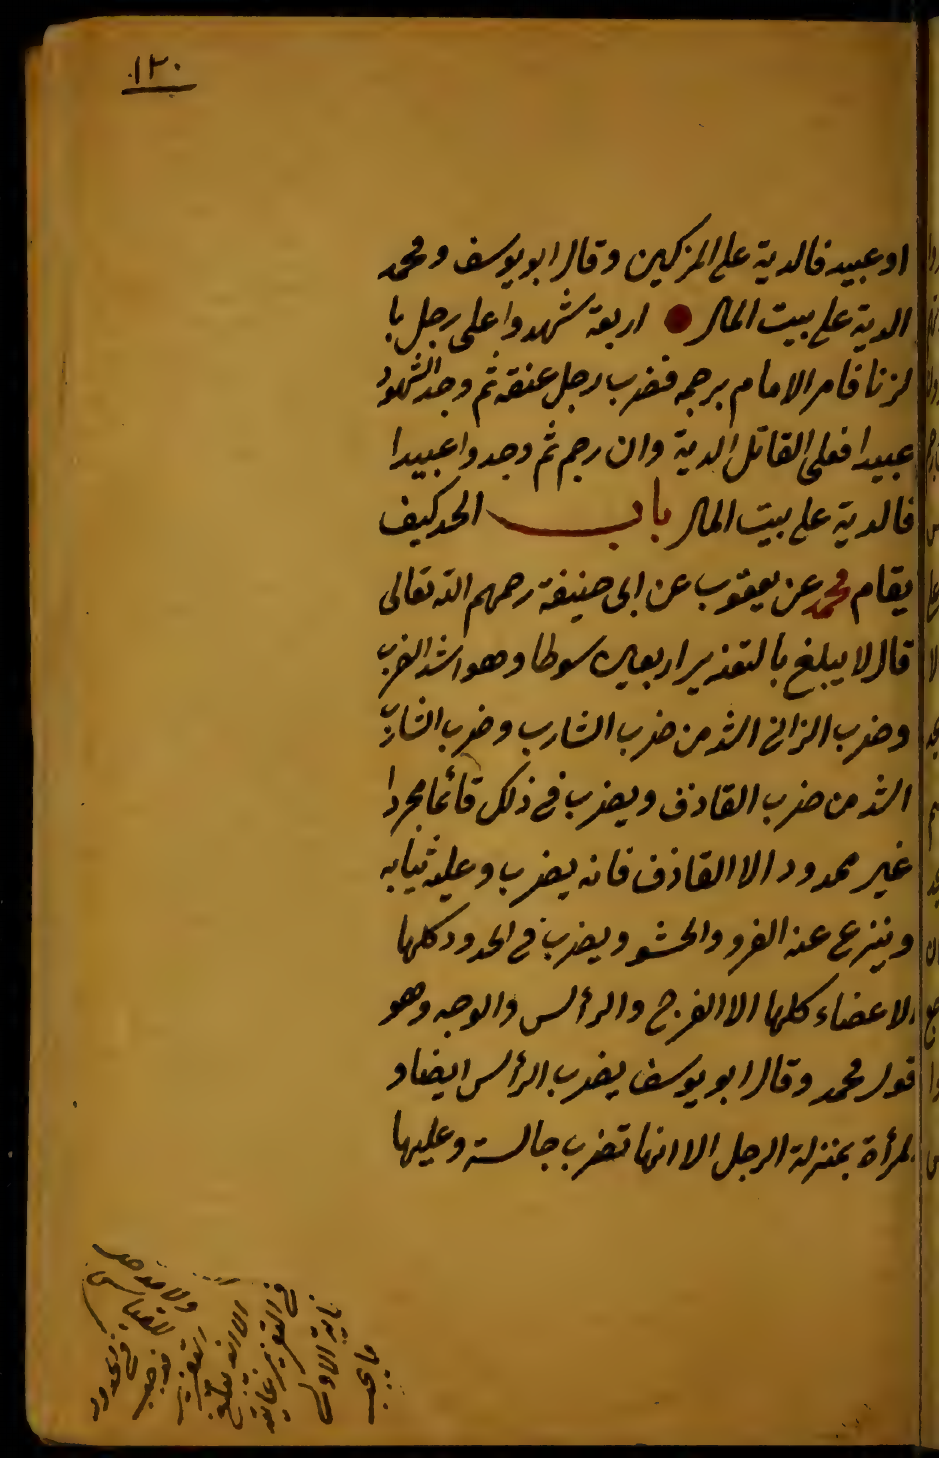 ١٢٠
او عبيد فالدية على المزكين وقال ابو يوسف ومحمد
الدية على بيت المال اربعة شهدوا على رجل با
لزنا فامر الامام برجمه فضرب رجل عنقه ثم وجد الشهود
عبيدا فعلى القاتل الدية وان رجم ثم وجدوا عبيدا
فالدية على بيت المال باب الحد كيف
يقام محمد عن يعقوب عن ابى حنيفة رحمهم الله تعالى
قال لا يبلغ بالتعزير اربعين سوطا وهو اشد الضرب
وضرب الزانى اشد من ضرب الشارب وضرب الشارب
اشد من ضرب القاذف ويضرب فى ذلك قائما مجردا
غير ممدود الا القاذف فانه يضرب وعليه ثيابه
وينزع عنه الفرو والحشو ويضرب فى الحدود كلها
الاعضاء كلها الا الفرج والرأس والوجه وهو
قول محمد وقال ابو يوسف يضرب الرأس ايضا و
لمرأة بمنزلة الرجل الا انها تضرب جالسة وعليها